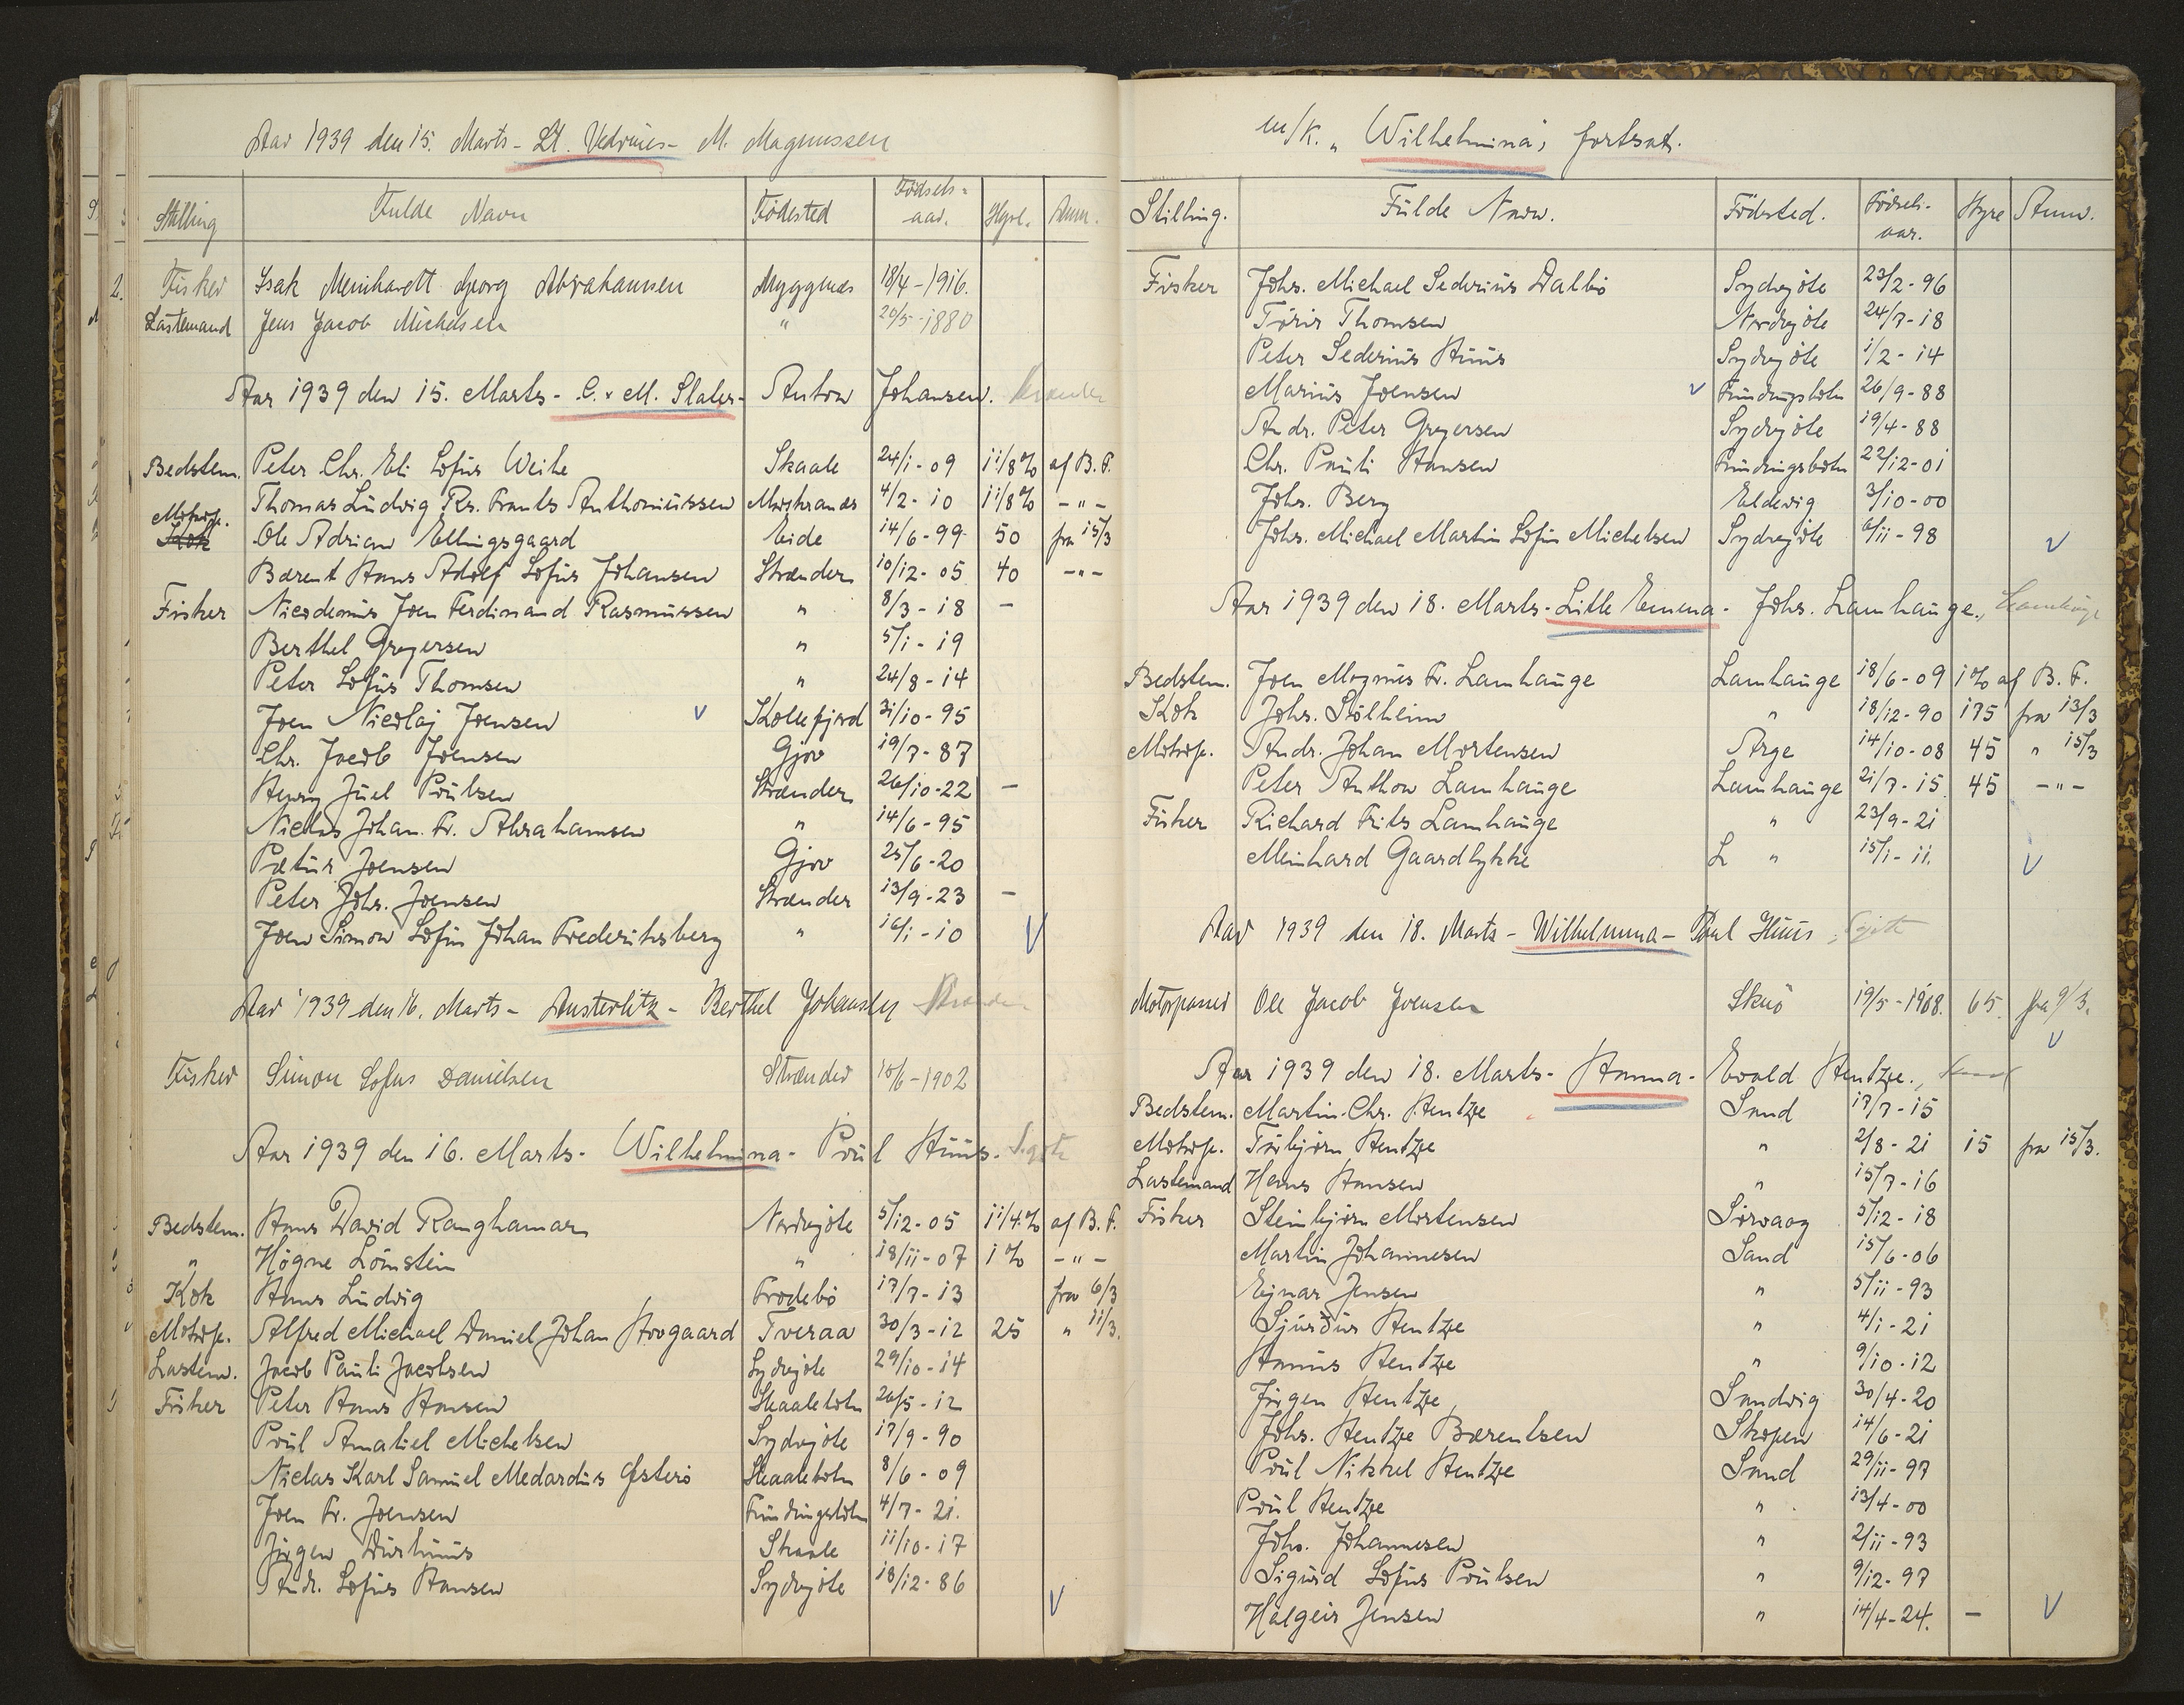 Aar 1939 den 15. Marts - Lt. Vedrines - M. Magnussen
Stilling Fulde Navn Födested Födselsaar. Hyre. Anm.
Fisker Isak Meinhardt Georg Abrahamsen Myggenæs 18/4-1916.
Lastemand Jens Jacob Michelsen " 20/5-1880
Aar 1939 den 15. Marts - C. & M. Slater - Anton Johansen.
Bedstem. Peter Chr. Eli Sofus Weihe Skaale 24/1-09 11/8% af B.F.
Thomas Ludvig Rs. Frants Anthoniussen Morskranes 4/2-10 11/8% -"-
Motorp. Kok Ole Adrian Ellingsgaard Eide 14/6-99 50 fra 15/3
Bærent Hans Adolf Sofus Johansen Strænder 10/12-05 40 -"-
Fisker Nicodemus Joen Ferdinand Rasmussen " 8/3-18 -
Berthel Gregersen " 5/1-19
Peter Sofus Thomsen " 24/8-14
Joen Nicolaj Joensen v Kollefjord 31/10-95
Chr. Jacob Joensen Gjov 19/7-87
Henry Juel Poulsen Strænder 26/10-22 -
Niclas Johan Fr. Abrahamsen " 14/6-95
Pætur Joensen Gjov 25/6-20
Peter Johs. Joensen Strænder 13/9-23 -
Joen Simon Sofus Johan Frederiksberg " 16/1-10 V
Aar 1939 den 16. Marts - Austerlitz - Berthel Johansen
Fisker Simon Sofus Danielsen Strænder 10/6-1902
Aar 1939 den 16. Marts - Wilhelmina - Poul Huus. S.göte
Bedstem. Hans David Ranghamar Nordregöte 5/12-05 11/4% af B.F.
" Högne Lömstein " 18/11-07 1% -"-
Kok Hans Ludvig Frodebö 17/7-13 fra 6/3
Motorp. Alfred Michael Daniel Johan Hovgaard Tveraa 30/3-12 25 " 11/3.
Lastem. Jacob Pauli Jacobsen Sydregöte 29/10-14
Fisker Peter Hans Hansen Skaalebotn 26/5-12
Poul Amaliel Michelsen Sydregöte 17/9-90
Niclas Karl Samuel Medardus Østerö Skaalebotn 8/6-09
Joen Fr. Joensen Fundingsbotn 4/7-21.
Jörgen Durhuus Skaale 11/10-17
Andr. Sofus Hansen Sydregöte 18/12-86 V
m/k. "Wilhelmina", fortsat.
Stilling. Fulde Navn. Födested. Födselsaar. Hyre Anm.
Fisker Johs. Michael Sederius Dalbö Sydregöte 23/2-96
Tórir Thomsen Nordregöte 24/7-18
Peter Sederius Huus Sydregöte 1/2-14
Marius Joensen v Fundingsbotn 26/9-88
Andr. Peter Gregersen Sydregöte 19/4-88
Chr. Pauli Hansen Fundingsbotn 22/12-01
Johs. Berg Eldevig 3/10-00
Johs. Michael Martin Sofus Michelsen Sydregöte 6/11-98 v
Aar 1939 den 18. Marts - Lille Emma - Johs. Lamhauge., Lamhauge
Bedstem. Joen Magnus Fr. Lamhauge Lamhauge 18/6-09 1% af B.F.
Kok Johs. Stölheim " 18/12-90 175 fra 13/3
Motorp. Andr. Johan Mortensen Arge 14/10-08 45 " 15/3
Peter Anthon Lamhauge Lamhauge 21/7-15 45 -"-
Fisker Richard Frits Lamhauge " 23/9-21
Meinhard Gaardlykke L " 15/1-11. V
Aar 1939 den 18. Marts - Wilhelmina - Poul Huus, S.göte
Motorpasser Ole Jacob Joensen Skuö 19/5-1908. 65. fra 9/3.
V
Aar 1939 den 18. Marts - Hanna - Evald Hentze., Sand
Bedstem. Martin Chr. Hentze Sand 17/7-15
Motorp. Tórbjörn Hentze " 2/8-21 15 fra 15/3.
Lastemand Hans Hansen " 15/7-16
Fisker Steinbjörn Mortensen Sörvaag 5/12-18
Martin Johannesen Sand 15/6-06
Ejnar Jensen " 5/11-93
Sjúrður Hentze " 4/1-21
Hanus Hentze " 9/10-12
Jörgen Hentze Sandvig 30/4-20
Johs. Hentze Bærentsen Skopen 14/6-21
Poul Nikkel Hentze Sand 29/11-97
Poul Hentze " 13/4-00
Johs. Johannesen " 2/11-93
Sigurd Sofus Poulsen " 9/12-97
Halgeir Jensen " 14/4-24. - V